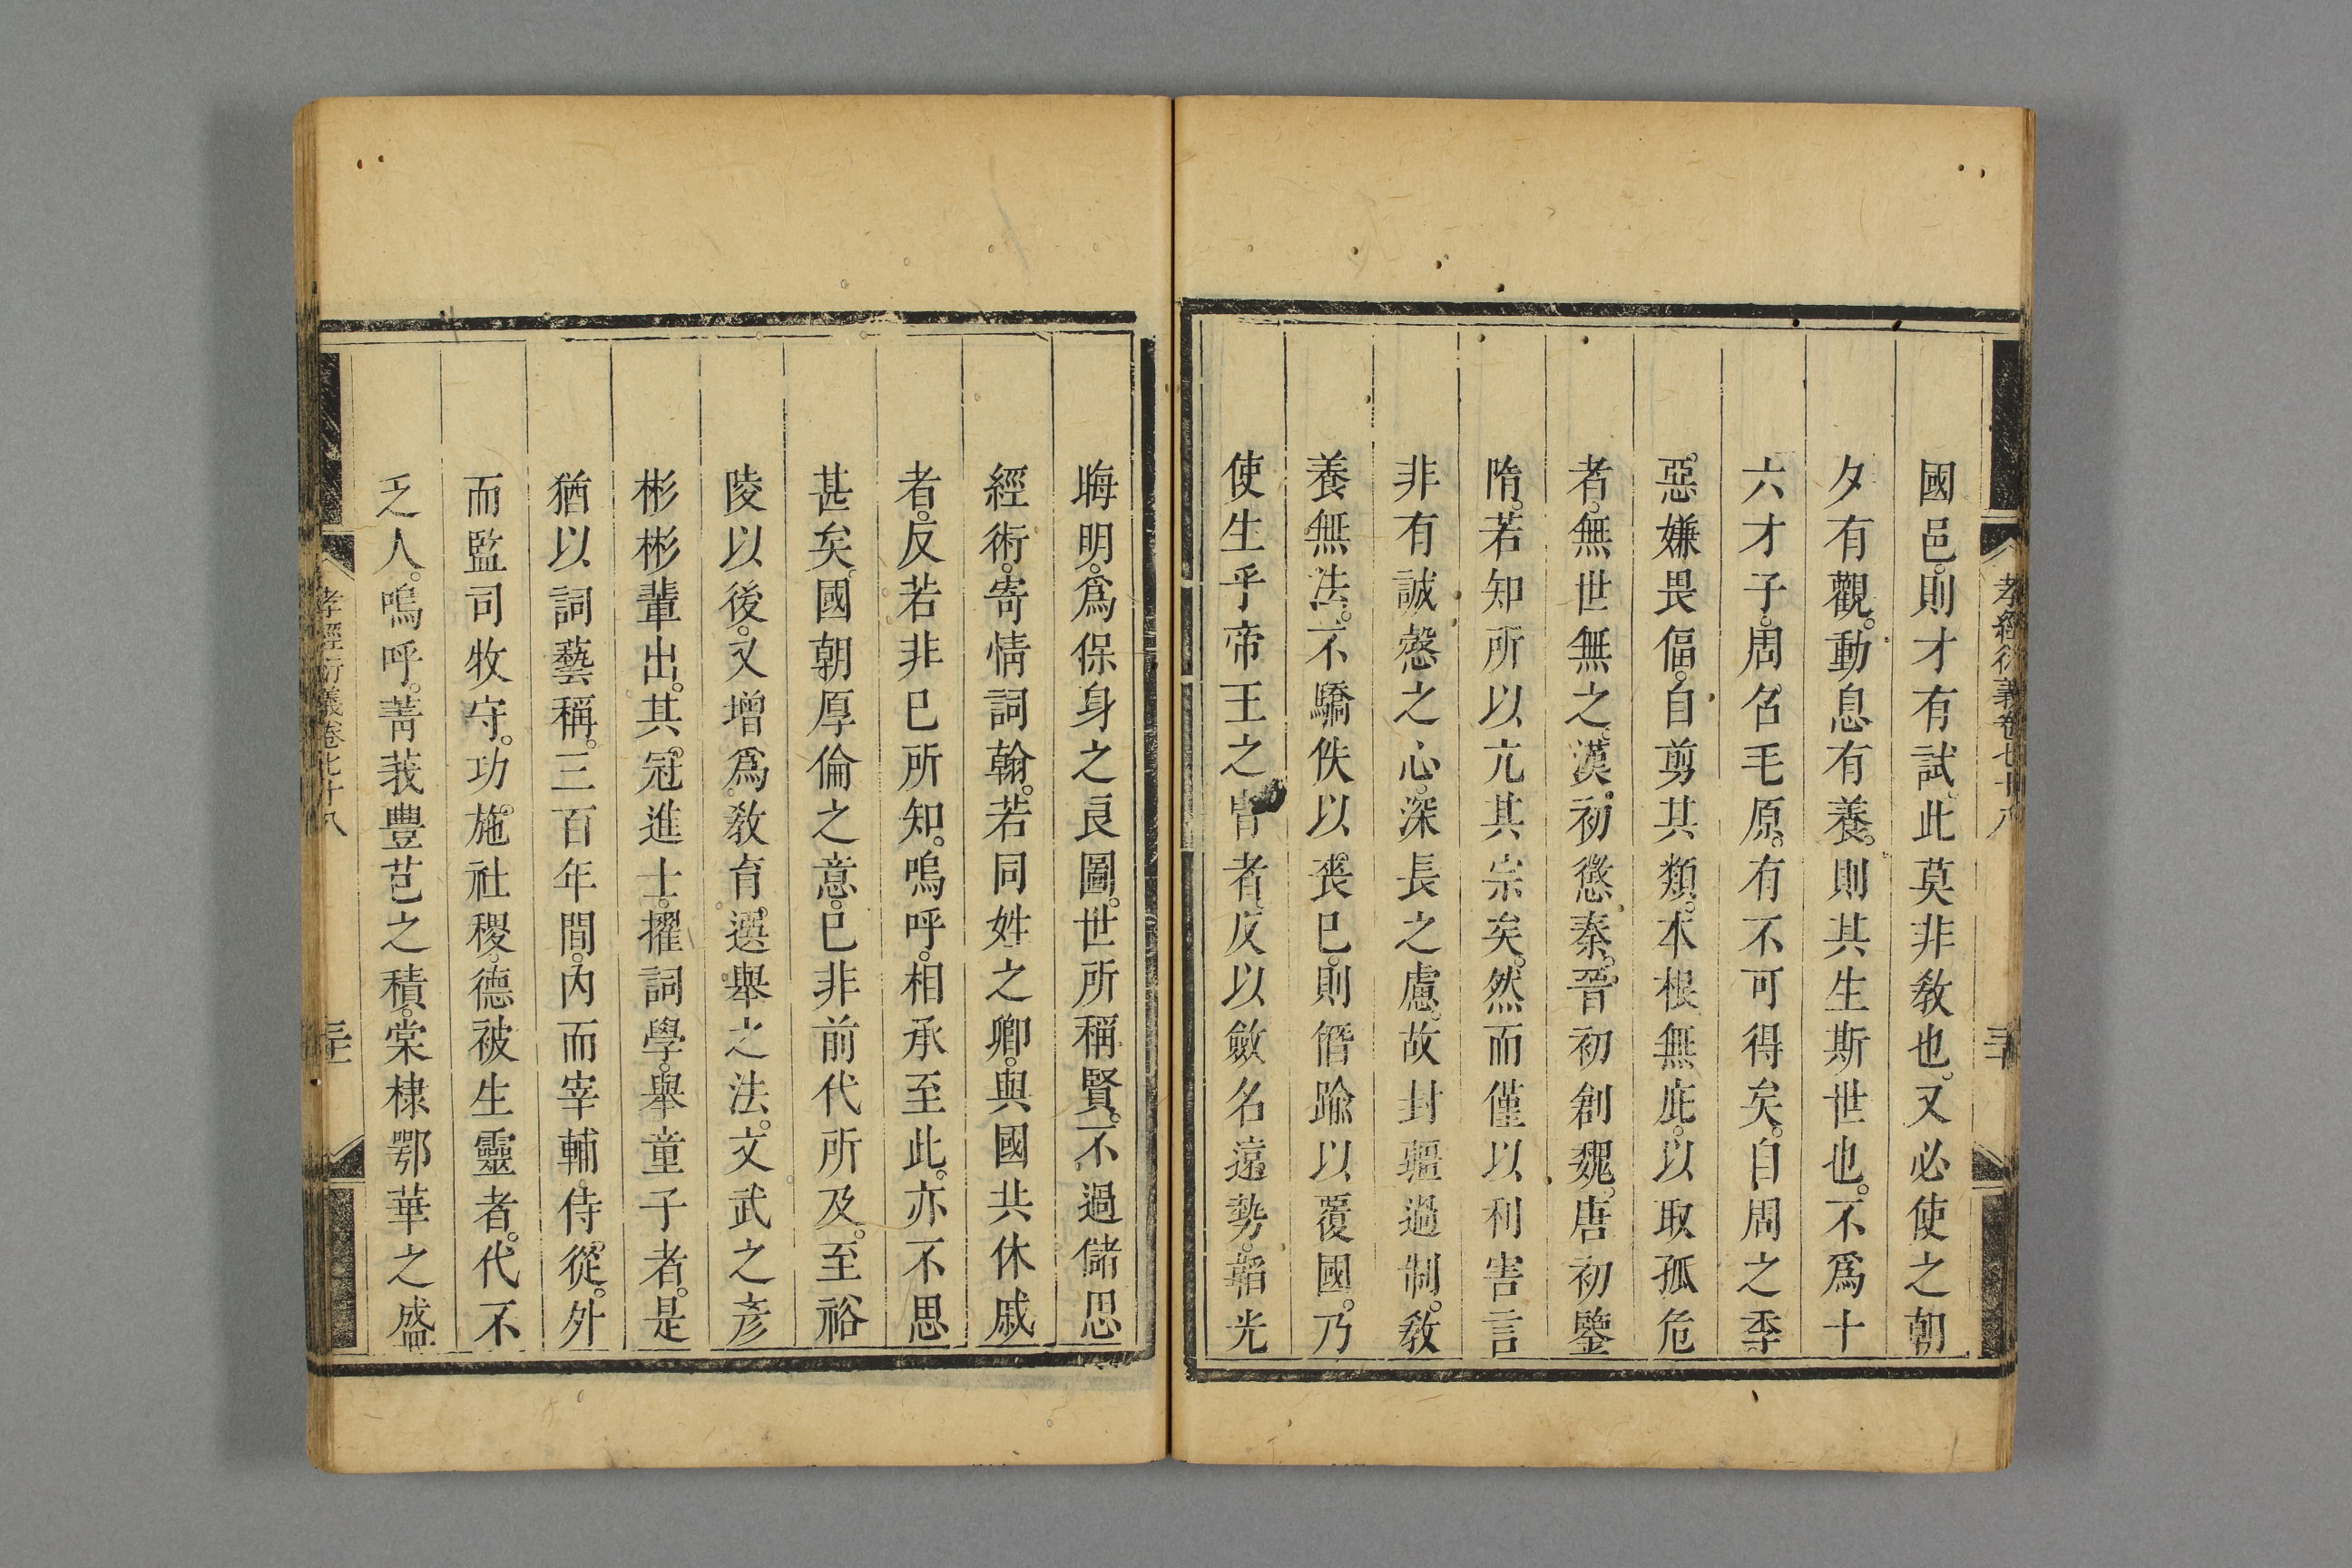 孝經衍義卷七十八
國邑。則才有試。此莫非敎也。又必使之朝
夕有觀。動息有養。則其生斯世也。不爲十
六才子。周召毛原。有不可得矣。自周之季
惡嫌畏偪。自剪其類。本根無庇。以取孤危
者。無世無之。漢初懲秦。晉初創魏。唐初鑒
隋。若知所以亢其宗矣。然而僅以利害言
非有誠慤之心。深長之慮。故封疆過制。敎
養無法。不驕佚以喪巳。則僭踰以覆國。乃
使生乎帝王之胄者。反以斂名遠勢。韜光
晦明。爲保身之良圖。世所稱賢。不過儲思
經術。寄情詞翰。若同姓之卿。與國共休戚
者。反若非巳所知。嗚呼。相承至此。亦不思
甚矣。國朝厚倫之意。巳非前代所及。至裕
陵以後。又增爲敎育。選舉之法。文武之彥
彬彬輩出。其冠進士。擢詞學。舉童子者。是
猶以詞藝稱。三百年間。內而宰輔侍從。外
而監司牧守。功施社稷。德被生靈者。代不
乏人。嗚呼。菁莪豐芑之積。棠棣鄂華之盛
孝經衍義卷七十八